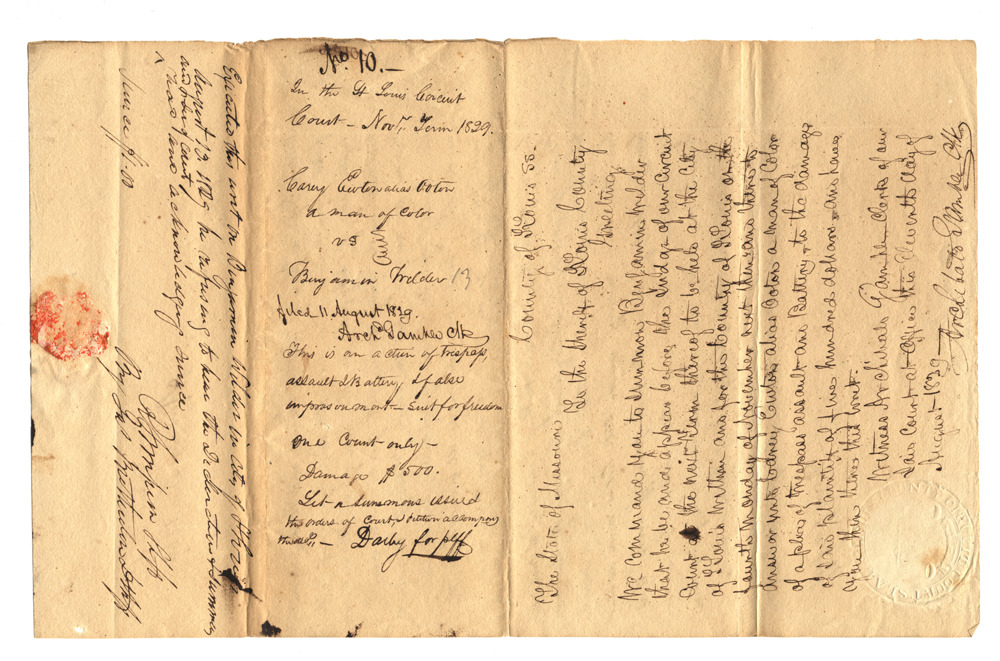 No. 10.—
In the St Louis Circuit
Court – Novr. Term 1829.
Carey Ewton alias Ooton
a man of Color
vs
Benjamin Wilder 13
filed 11 August 1829.
Arch Gamble Clk
This is an action of trespass,
assault & Battery, & false
imprisonment – Suit for freedom
one Count only; –
Damage $500.
Let a summons issued
the orders of Court & petition accompany
Darby for plff
The State of Missouri
County of St Louis SS.
To the Sheriff of St Louis County
Greeting
We Command you to summon Benjamin Wilder
that he be and appear before the Judge of our Circuit
Court at the next Term thereof to be held at the City
of St Louis within and for the County of St Louis on the
fourth monday of November next then and there to
answer unto Carey Ewton alias Ooton a man of Color
of a plea of trespass assault and Battery, to the damage
of said plaintiff of five hundred dollars and have
you then there this writ.
Witness Archibald Gamble Clerk of our
Said Court at office this eleventh day of
August 1829
Archibald Gamble Clk
Executed this writ on Benjamin Wilder in City of St Louis
August 13 1829 he refusing to hear the Declaration & Summons
and order of Court
has and acknowledging service
Service $1.00
R Simpson Shff